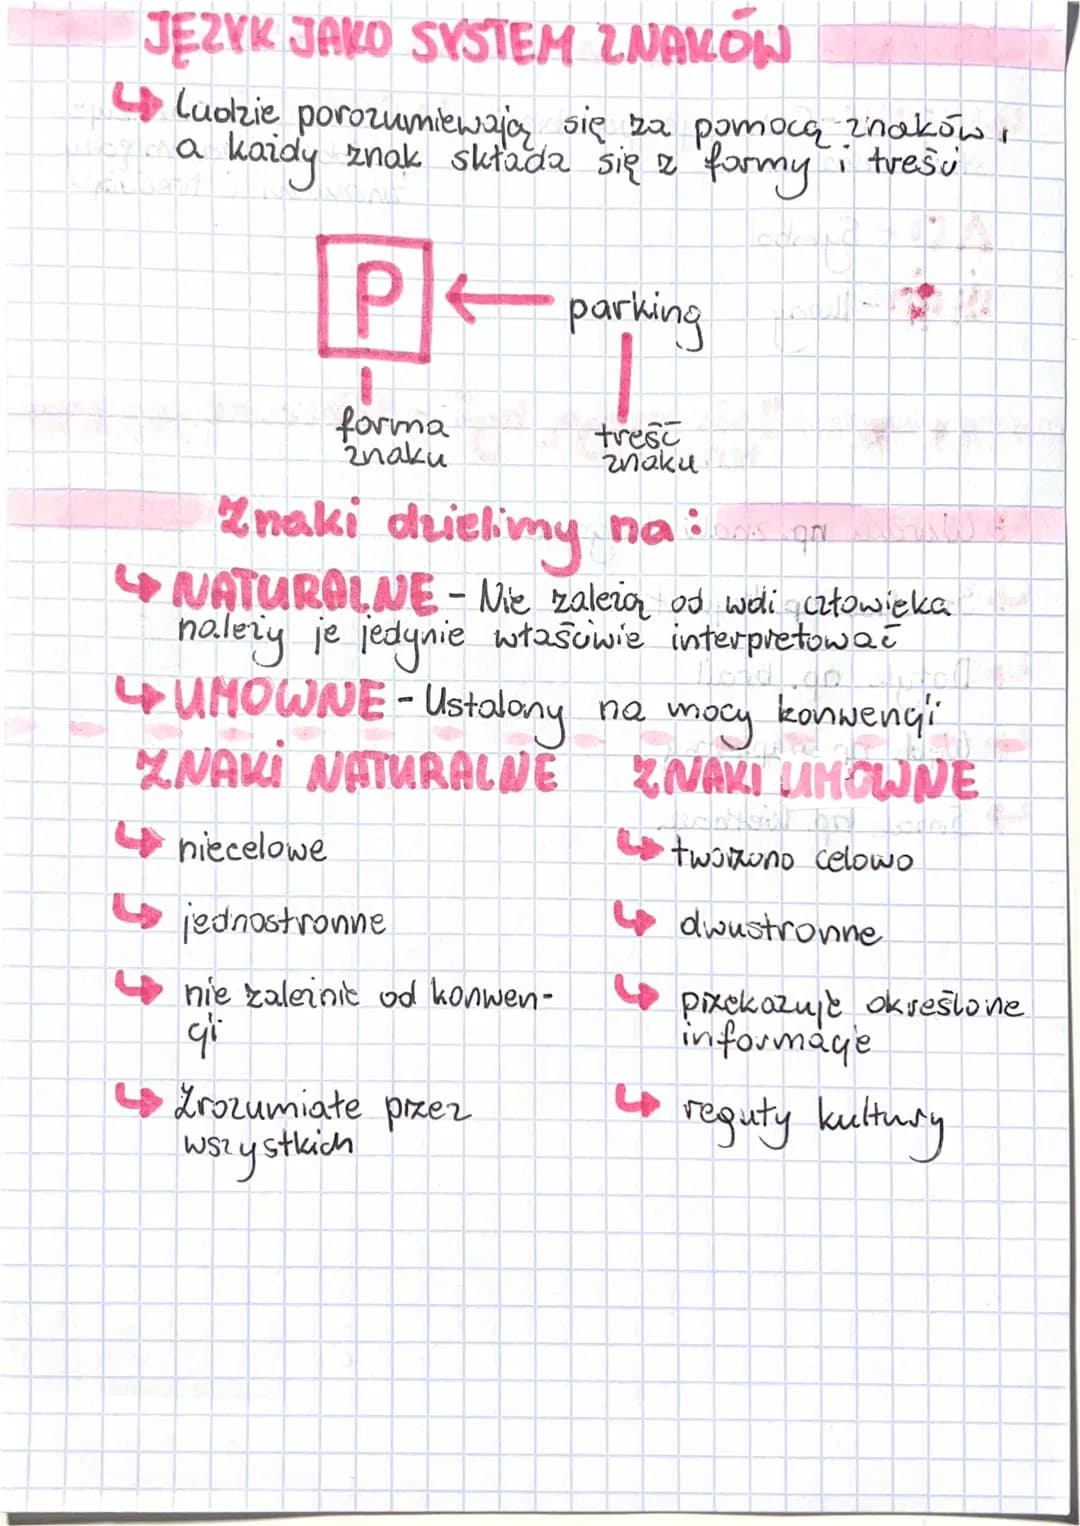 JĘZYK JAKO SYSTEM ZNAKÓW
↳ Ludzie porozumiewają się za pomocą znaków,
a każdy znak składa się z formy i treści
P ← parking
forma
znaku
treść
znaku
Znaki dzielimy na:
↳ NATURALNE - Nie zależą od woli człowieka
należy je jedynie właściwie interpretować
↳ UMOWNE - Ustalony na mocy konwencji
ZNAKI NATURALNE
↳ niecelowe
↳ jednostronne
↳ nie zależnie od konwen-
cji
↳ Zrozumiałe przez
wszystkich
ZNAKI UMOWNE
↳ tworzono celowo
↳ dwustronne
↳ przekazuje określone
informacje
↳ reguły kultury